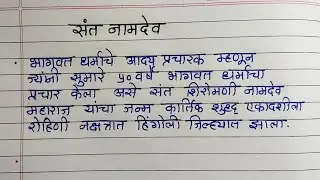 संत नामदेव
भागवत धर्माचे आद्य प्रचारक म्हणून
ज्यांनी सुमारे ५० वर्षे भागवत धर्माचा
प्रचार केला असे संत शिरोमणी नामदेव
महाराज यांचा जन्म कार्तिक शुद्ध एकादशीला
रोहिणी नक्षत्रात हिंगोली जिल्ह्यात झाला.